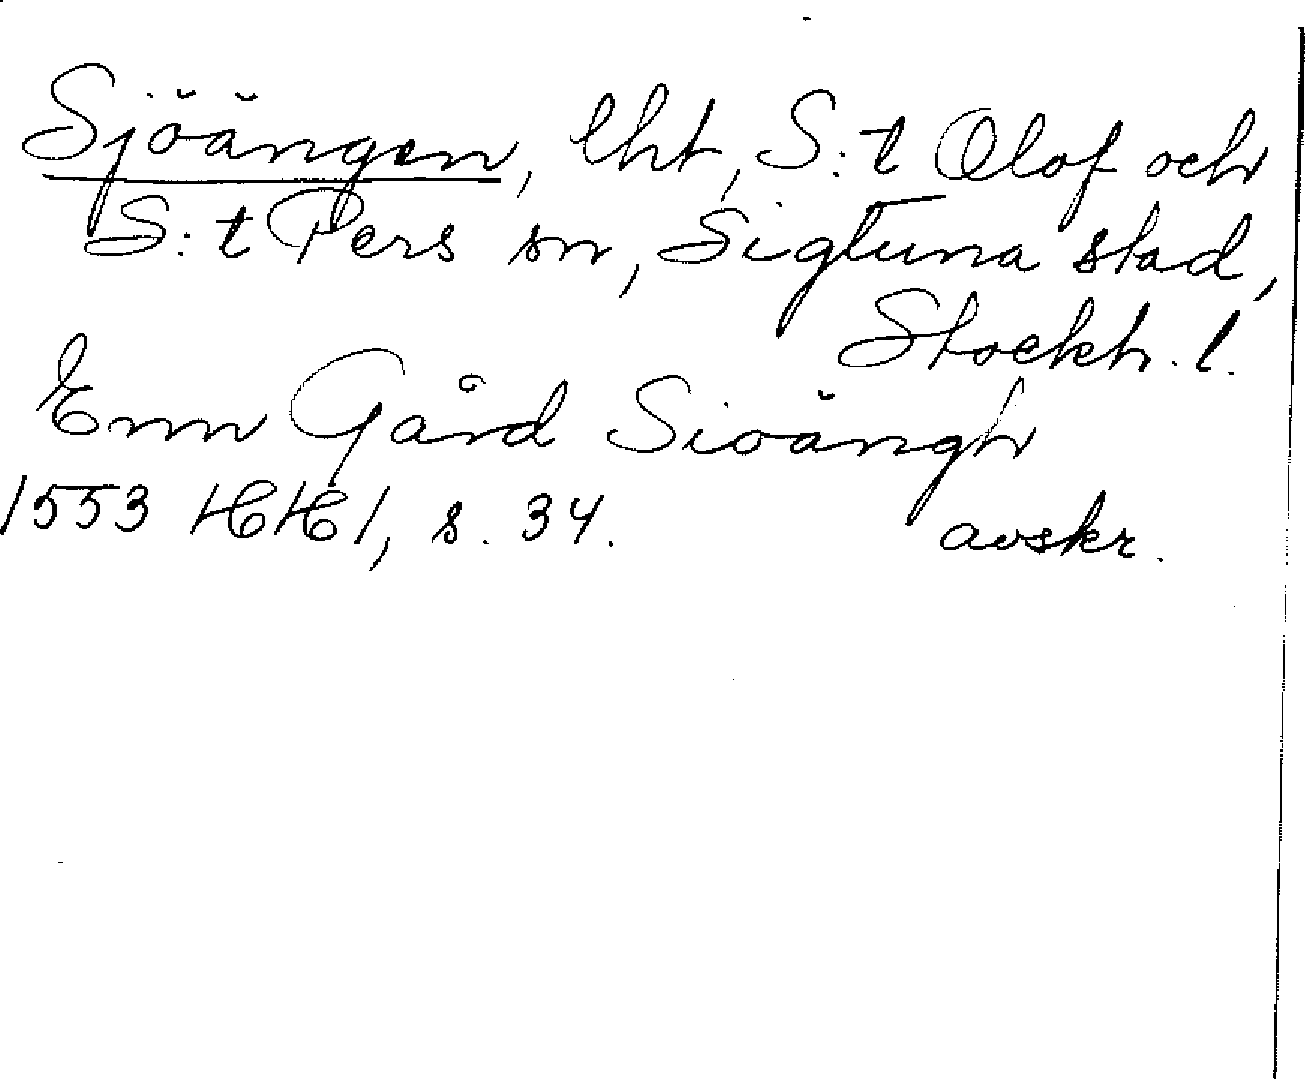 Sjöängen, lht, S:t Olof och
S:t Pers sn, Sigtuna stad,
Stockh. l.
Enn Gård Sioängh
1553 HH 1, s. 34. avskr.